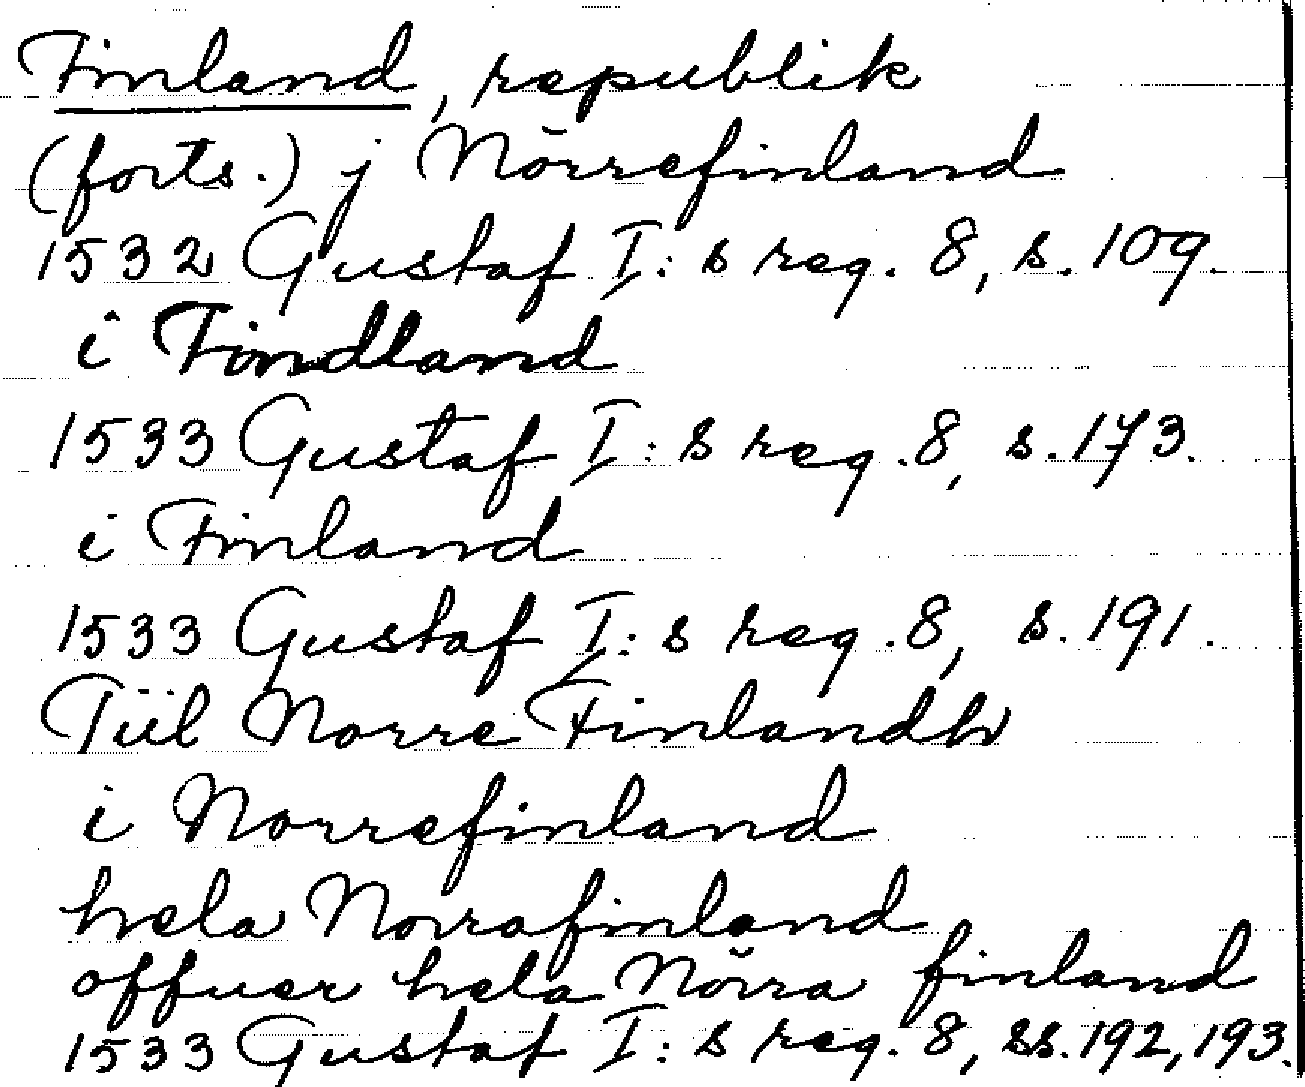 Finland, republik
(forts.) j Nörrefinland
1532 Gustaf I:s reg. 8, s. 109.
i Findland
1533 Gustaf I:s reg. 8, s. 173.
i Finland
1533 Gustaf I:s reg. 8, s. 191.
Tiil Norre Finlandh
i Norrefinland
hela Norrafinland
offuer hela Nörra finland
1533 Gustaf I:s reg. 8, ss. 192, 193.